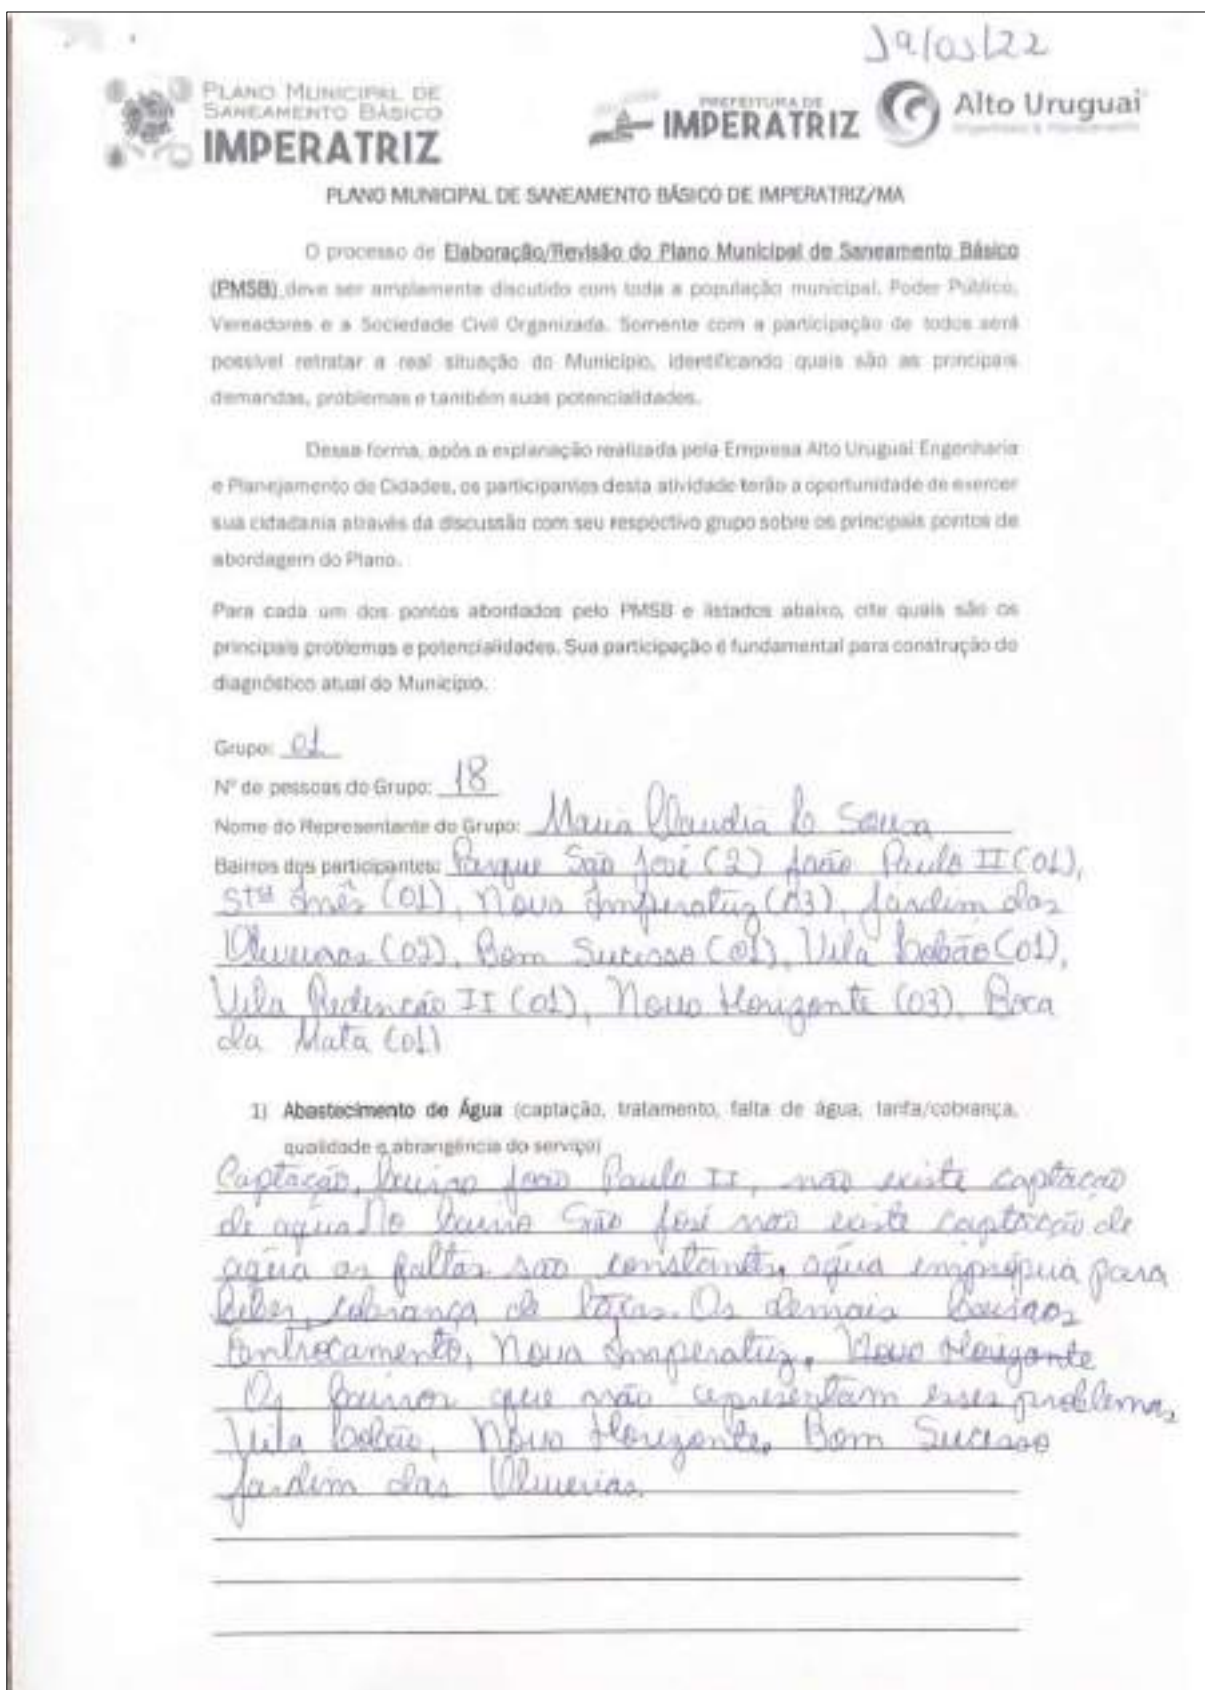 19/03/22
PLANO MUNICIPAL DE
SANEAMENTO BÁSICO
IMPERATRIZ
PREFEITURA DE
IMPERATRIZ
Alto Uruguai
PLANO MUNICIPAL DE SANEAMENTO BÁSICO DE IMPERATRIZ/MA
O processo de Elaboração/Revisão do Plano Municipal de Saneamento Básico
(PMSB) deve ser amplamente discutido com toda a população municipal, Poder Público,
Vereadores e a Sociedade Civil Organizada. Somente com a participação de todos será
possível retratar a real situação do Município, identificando quais são as principais
demandas, problemas e também suas potencialidades.
Dessa forma, após a explanação realizada pela Empresa Alto Uruguai Engenharia
e Planejamento de Cidades, os participantes desta atividade terão a oportunidade de exercer
sua cidadania através da discussão com seu respectivo grupo sobre os principais pontos de
abordagem do Plano.
Para cada um dos pontos abordados pelo PMSB e listados abaixo, cite quais são os
principais problemas e potencialidades. Sua participação é fundamental para construção do
diagnóstico atual do Município.
Grupo: 01
Nº de pessoas do Grupo: 18
Nome do Representante do Grupo: Maria Claudia Sousa
Bairros dos participantes: Parque São José (2) João Paulo II (01),
Stª Inês (01), Nova Imperatriz (03), Jardim das
Oliveiras (02), Bom Sucesso (01), Vila Lobão (01),
Vila Redenção II (01), Novo Horizonte (03), Boca
da Mata (01)
1) Abastecimento de Água (captação, tratamento, falta de água, tarifa/cobrança,
qualidade e abrangência do serviço)
Captação, bairro João Paulo II, não existe captação
de agua. No bairro São José não existe captação de
agua as faltas são constantes, agua impropria para
beber, cobrança de taxas. Os demais bairros
Entrocamento, Nova Imperatriz, Novo Horizonte
Os bairros que não apresentam esses problemas,
Vila Lobão, Novo Horizonte, Bom Sucesso
Jardim das Oliverias.